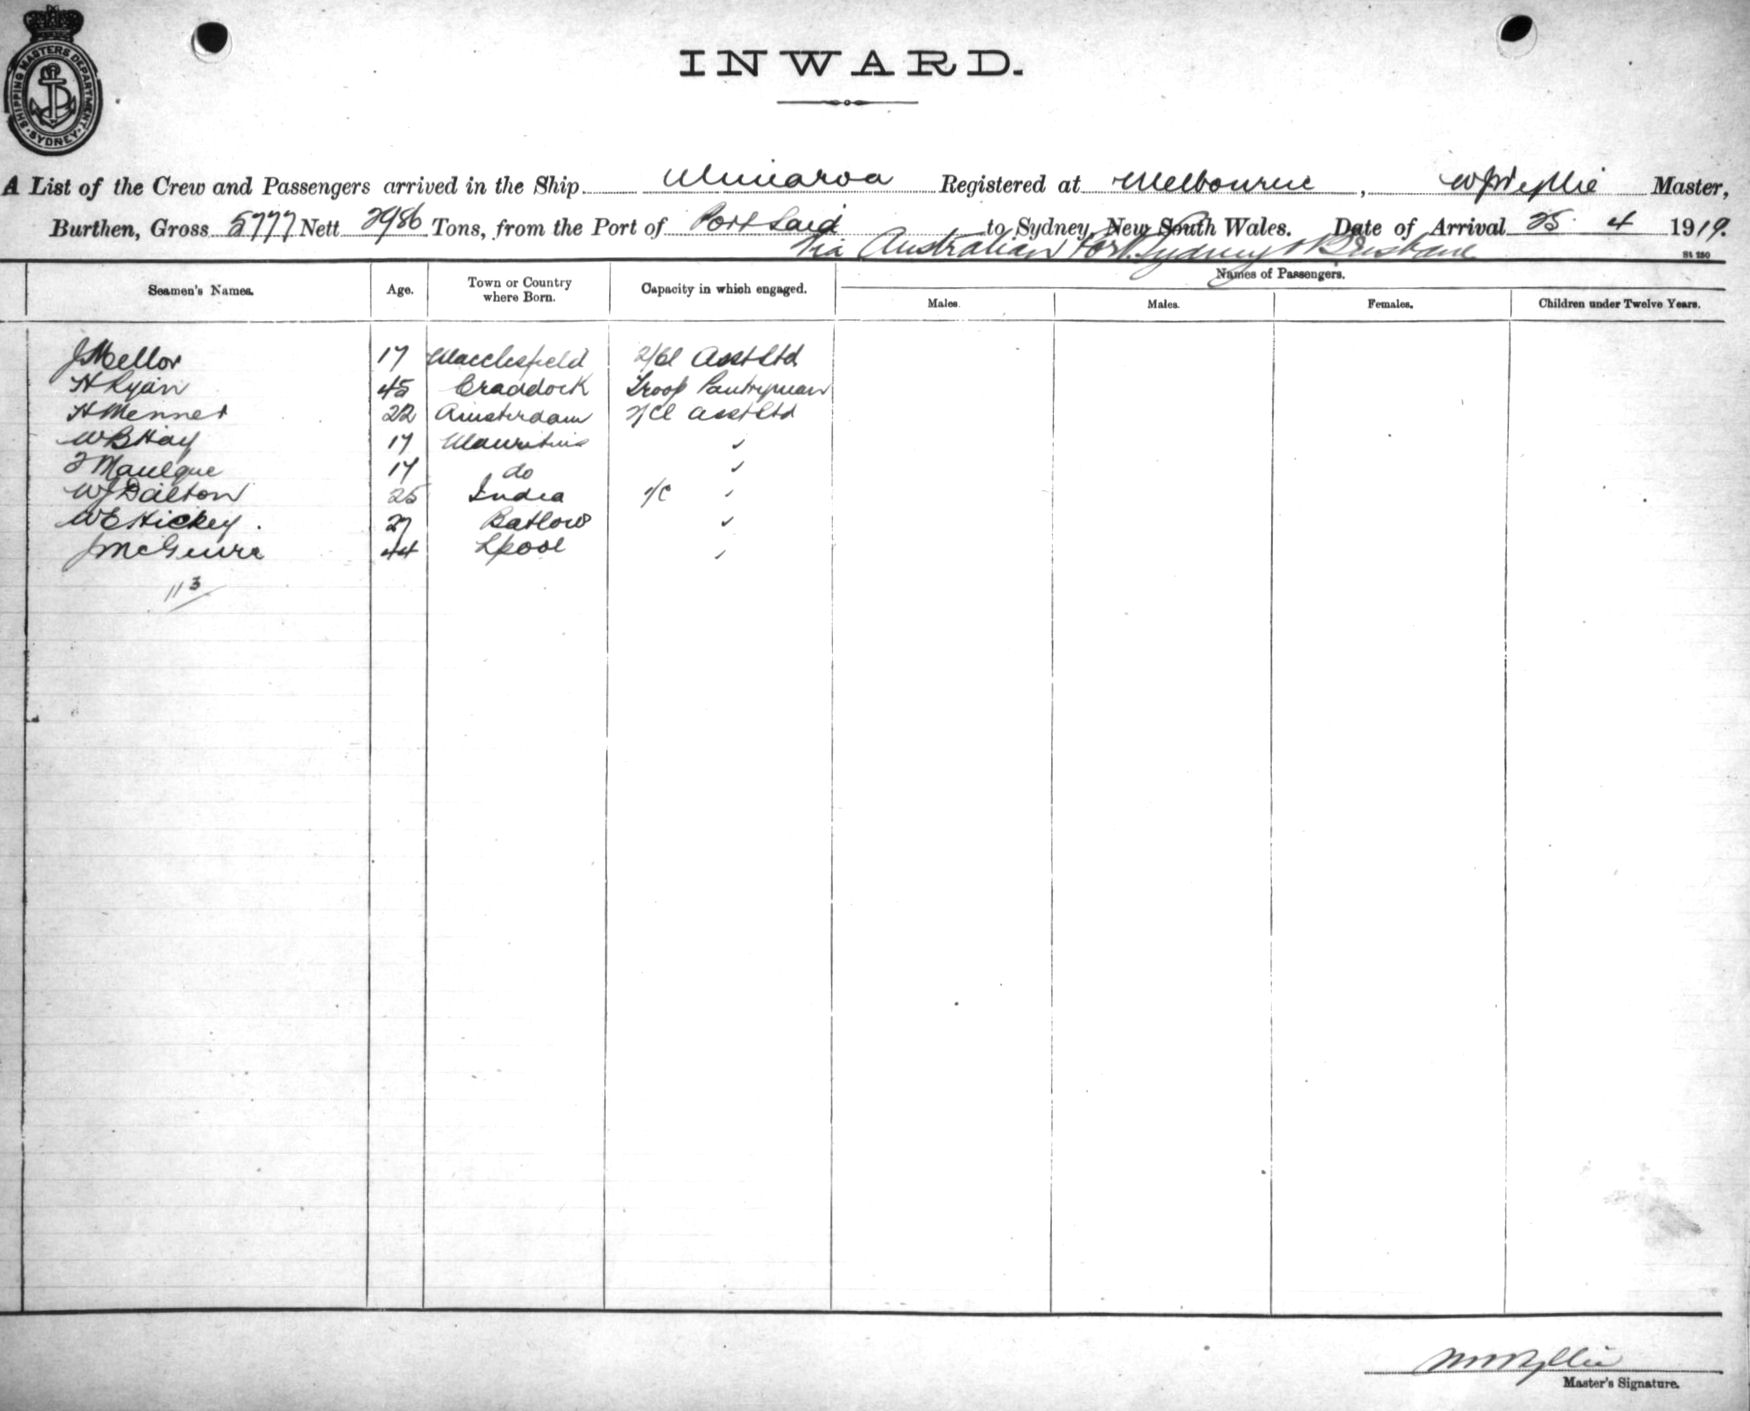 SHIPPING MASTERS DEPARTMENT · SYDNEY ·
INWARD.
A List of the Crew and Passengers arrived in the Ship Registered at Melbourne, Master,
Burthen, Gross 5777 Nett 2986 Tons, from the Port of Port Said to Sydney, New South Wales. Date of Arrival 25 4 1919.
Via Australian Port Sydney & Brisbane
St 250
Seamen's Names. Age. Town or Country where Born. Capacity in which engaged. Names of Passengers.
Males. Males. Females. Children under Twelve Years.
J Mellor 17 Macclesfield 2/Cl Asst Std
H Ryan 45 Craddock Troop Pantryman
H Mennet 22 Amsterdam 2/Cl Asst Std
W B Hay 17 Mauritius ✓
17 do ✓
W J Dalton 25 India 1/C ✓
W E Hickey. 27 Batlow ✓
J McGuire 44 Lpool ✓
113
Master's Signature.